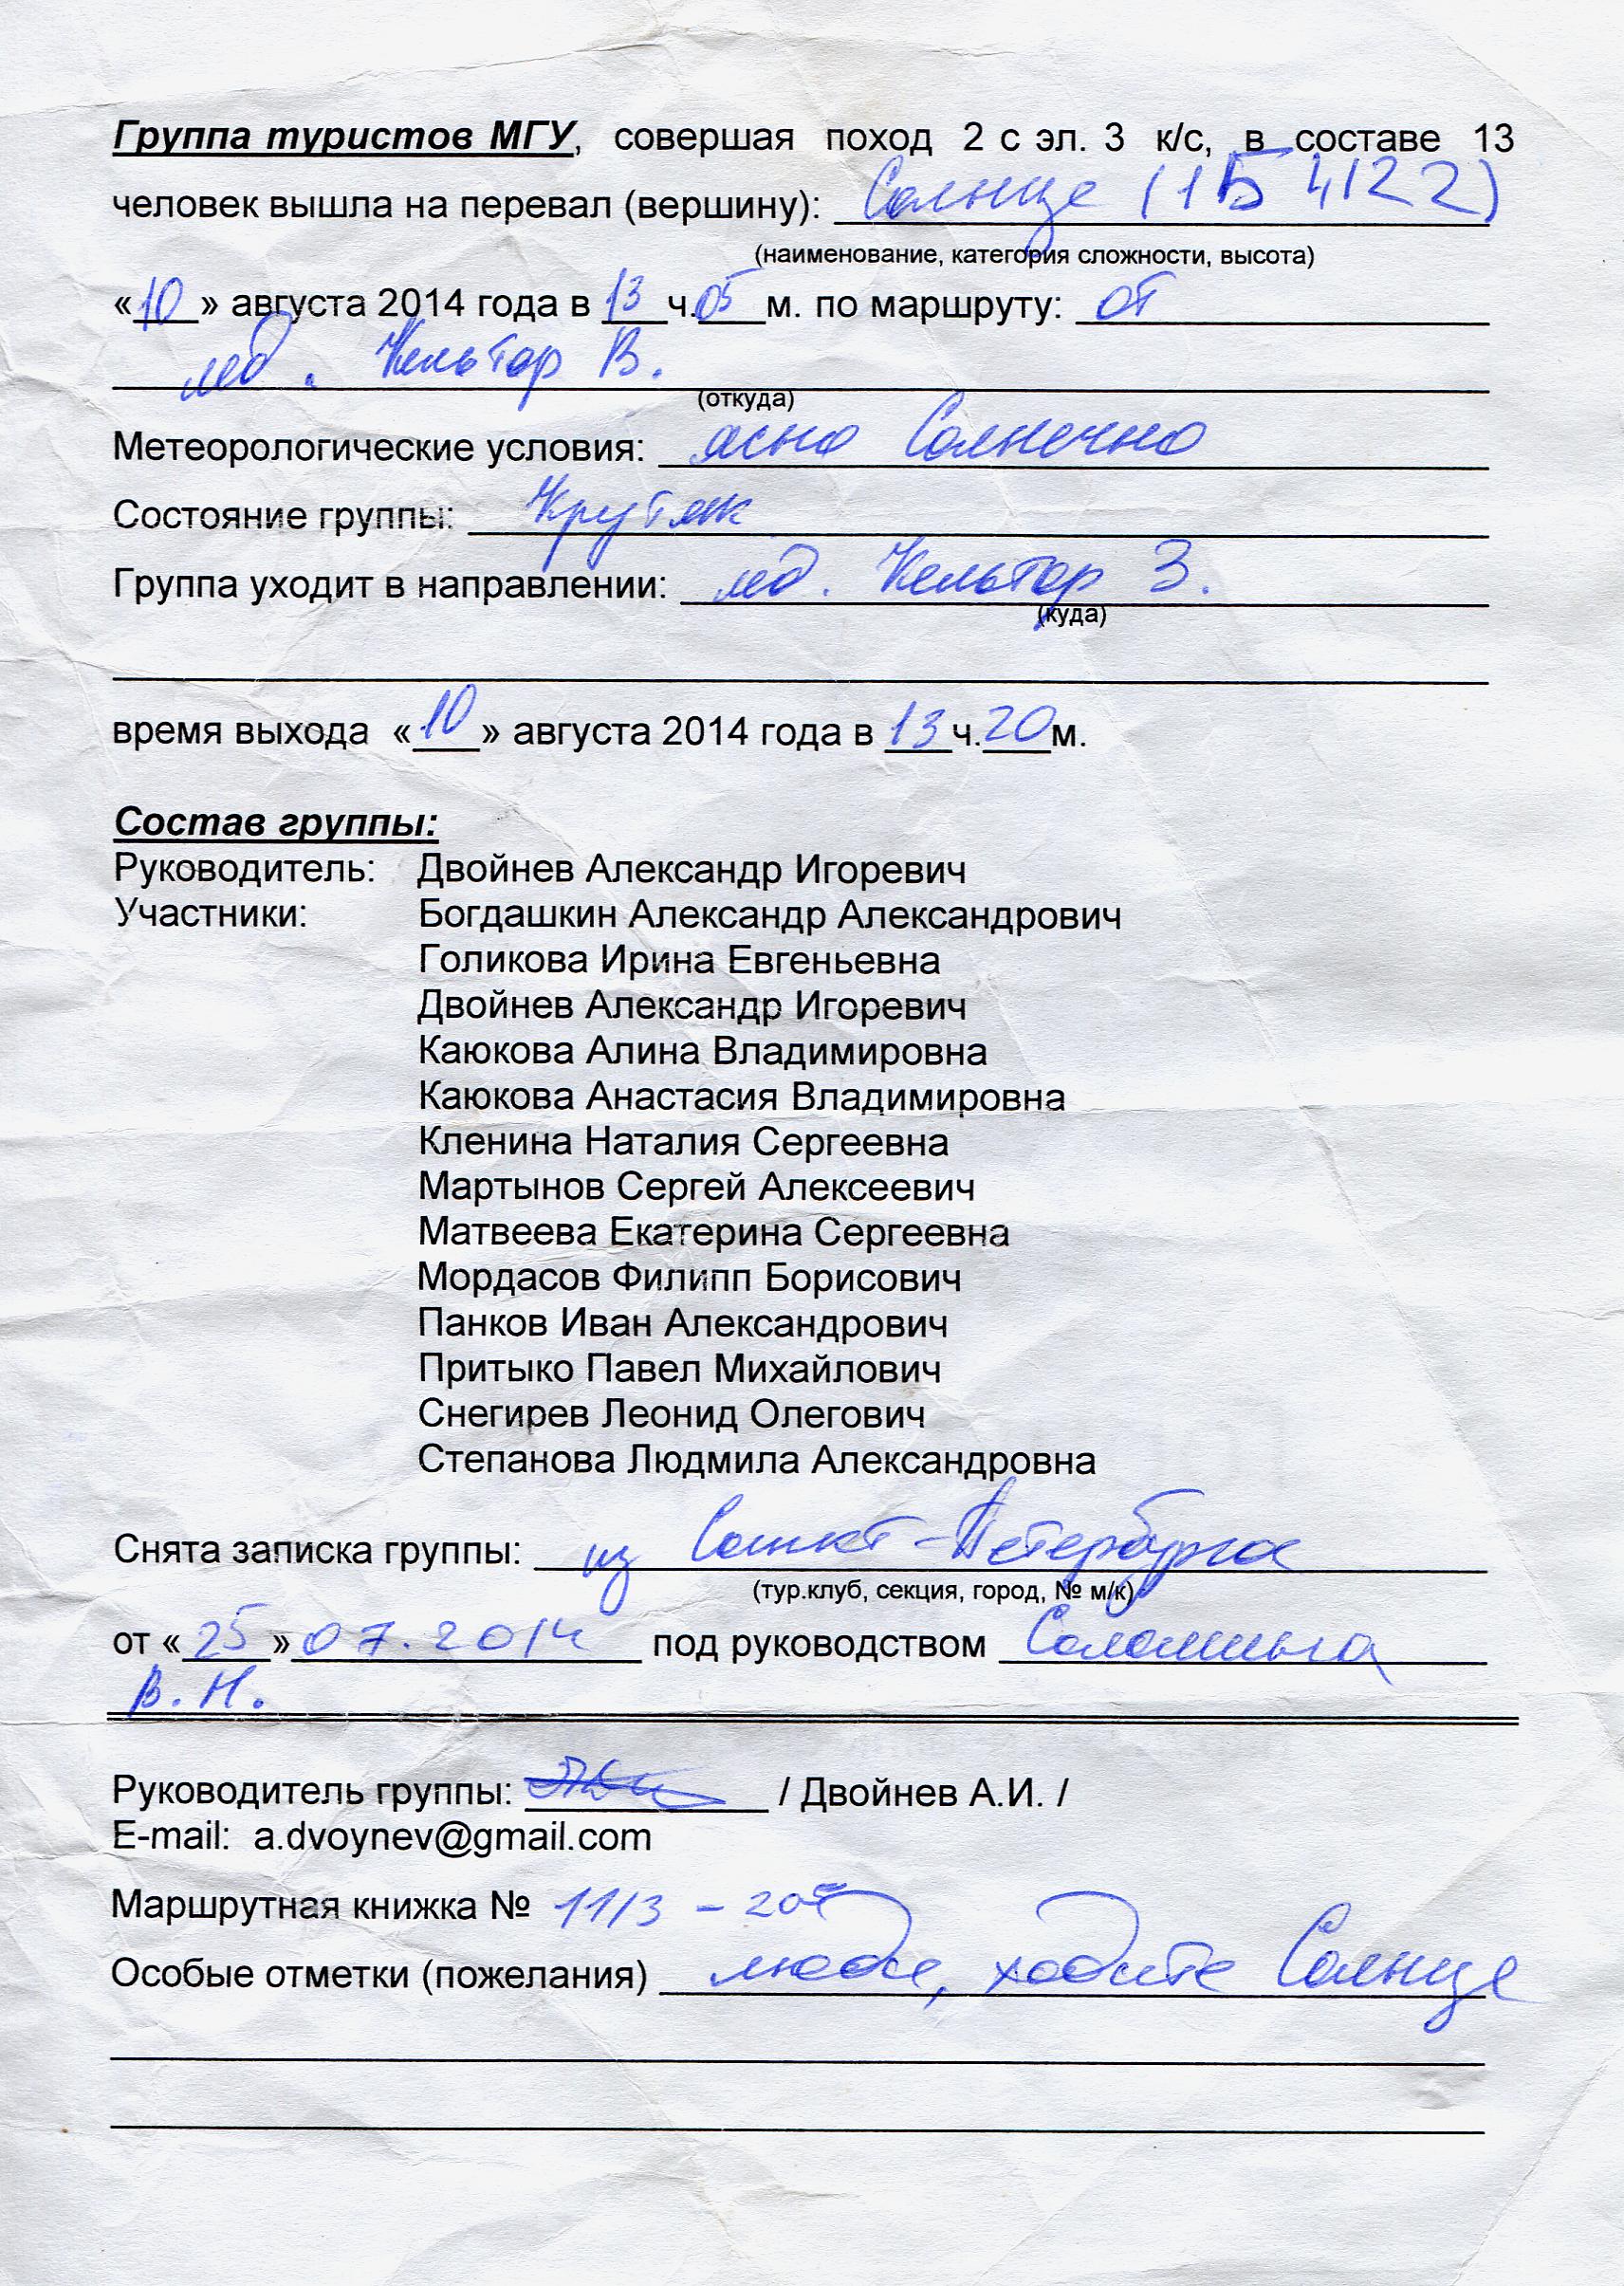 Группа туристов МГУ, совершая поход 2 с эл. 3 к/с, в составе 13
человек вышла на перевал (вершину): Солнце (1Б 4122)
(наименование, категория сложности, высота)
«10» августа 2014 года в 13 ч. 05 м. по маршруту: от
лед. Кельтор В.
(откуда)
Метеорологические условия: ясно Солнечно
Состояние группы: Крутяк
Группа уходит в направлении: лед. Кельтор З.
(куда)
время выхода «10» августа 2014 года в 13 ч. 20 м.
Состав группы:
Руководитель: Двойнев Александр Игоревич
Участники: Богдашкин Александр Александрович
Голикова Ирина Евгеньевна
Двойнев Александр Игоревич
Каюкова Алина Владимировна
Каюкова Анастасия Владимировна
Кленина Наталия Сергеевна
Мартынов Сергей Алексеевич
Матвеева Екатерина Сергеевна
Мордасов Филипп Борисович
Панков Иван Александрович
Притыко Павел Михайлович
Снегирев Леонид Олегович
Степанова Людмила Александровна
Снята записка группы: из Санкт-Петербурга
(тур.клуб, секция, город, № м/к)
от «25» 07.2014 под руководством Саломина
В.Н.
Руководитель группы: / Двойнев А.И. /
E-mail: a.dvoynev@gmail.com
Маршрутная книжка № 11/3 -
Особые отметки (пожелания) люди, ходите Солнце